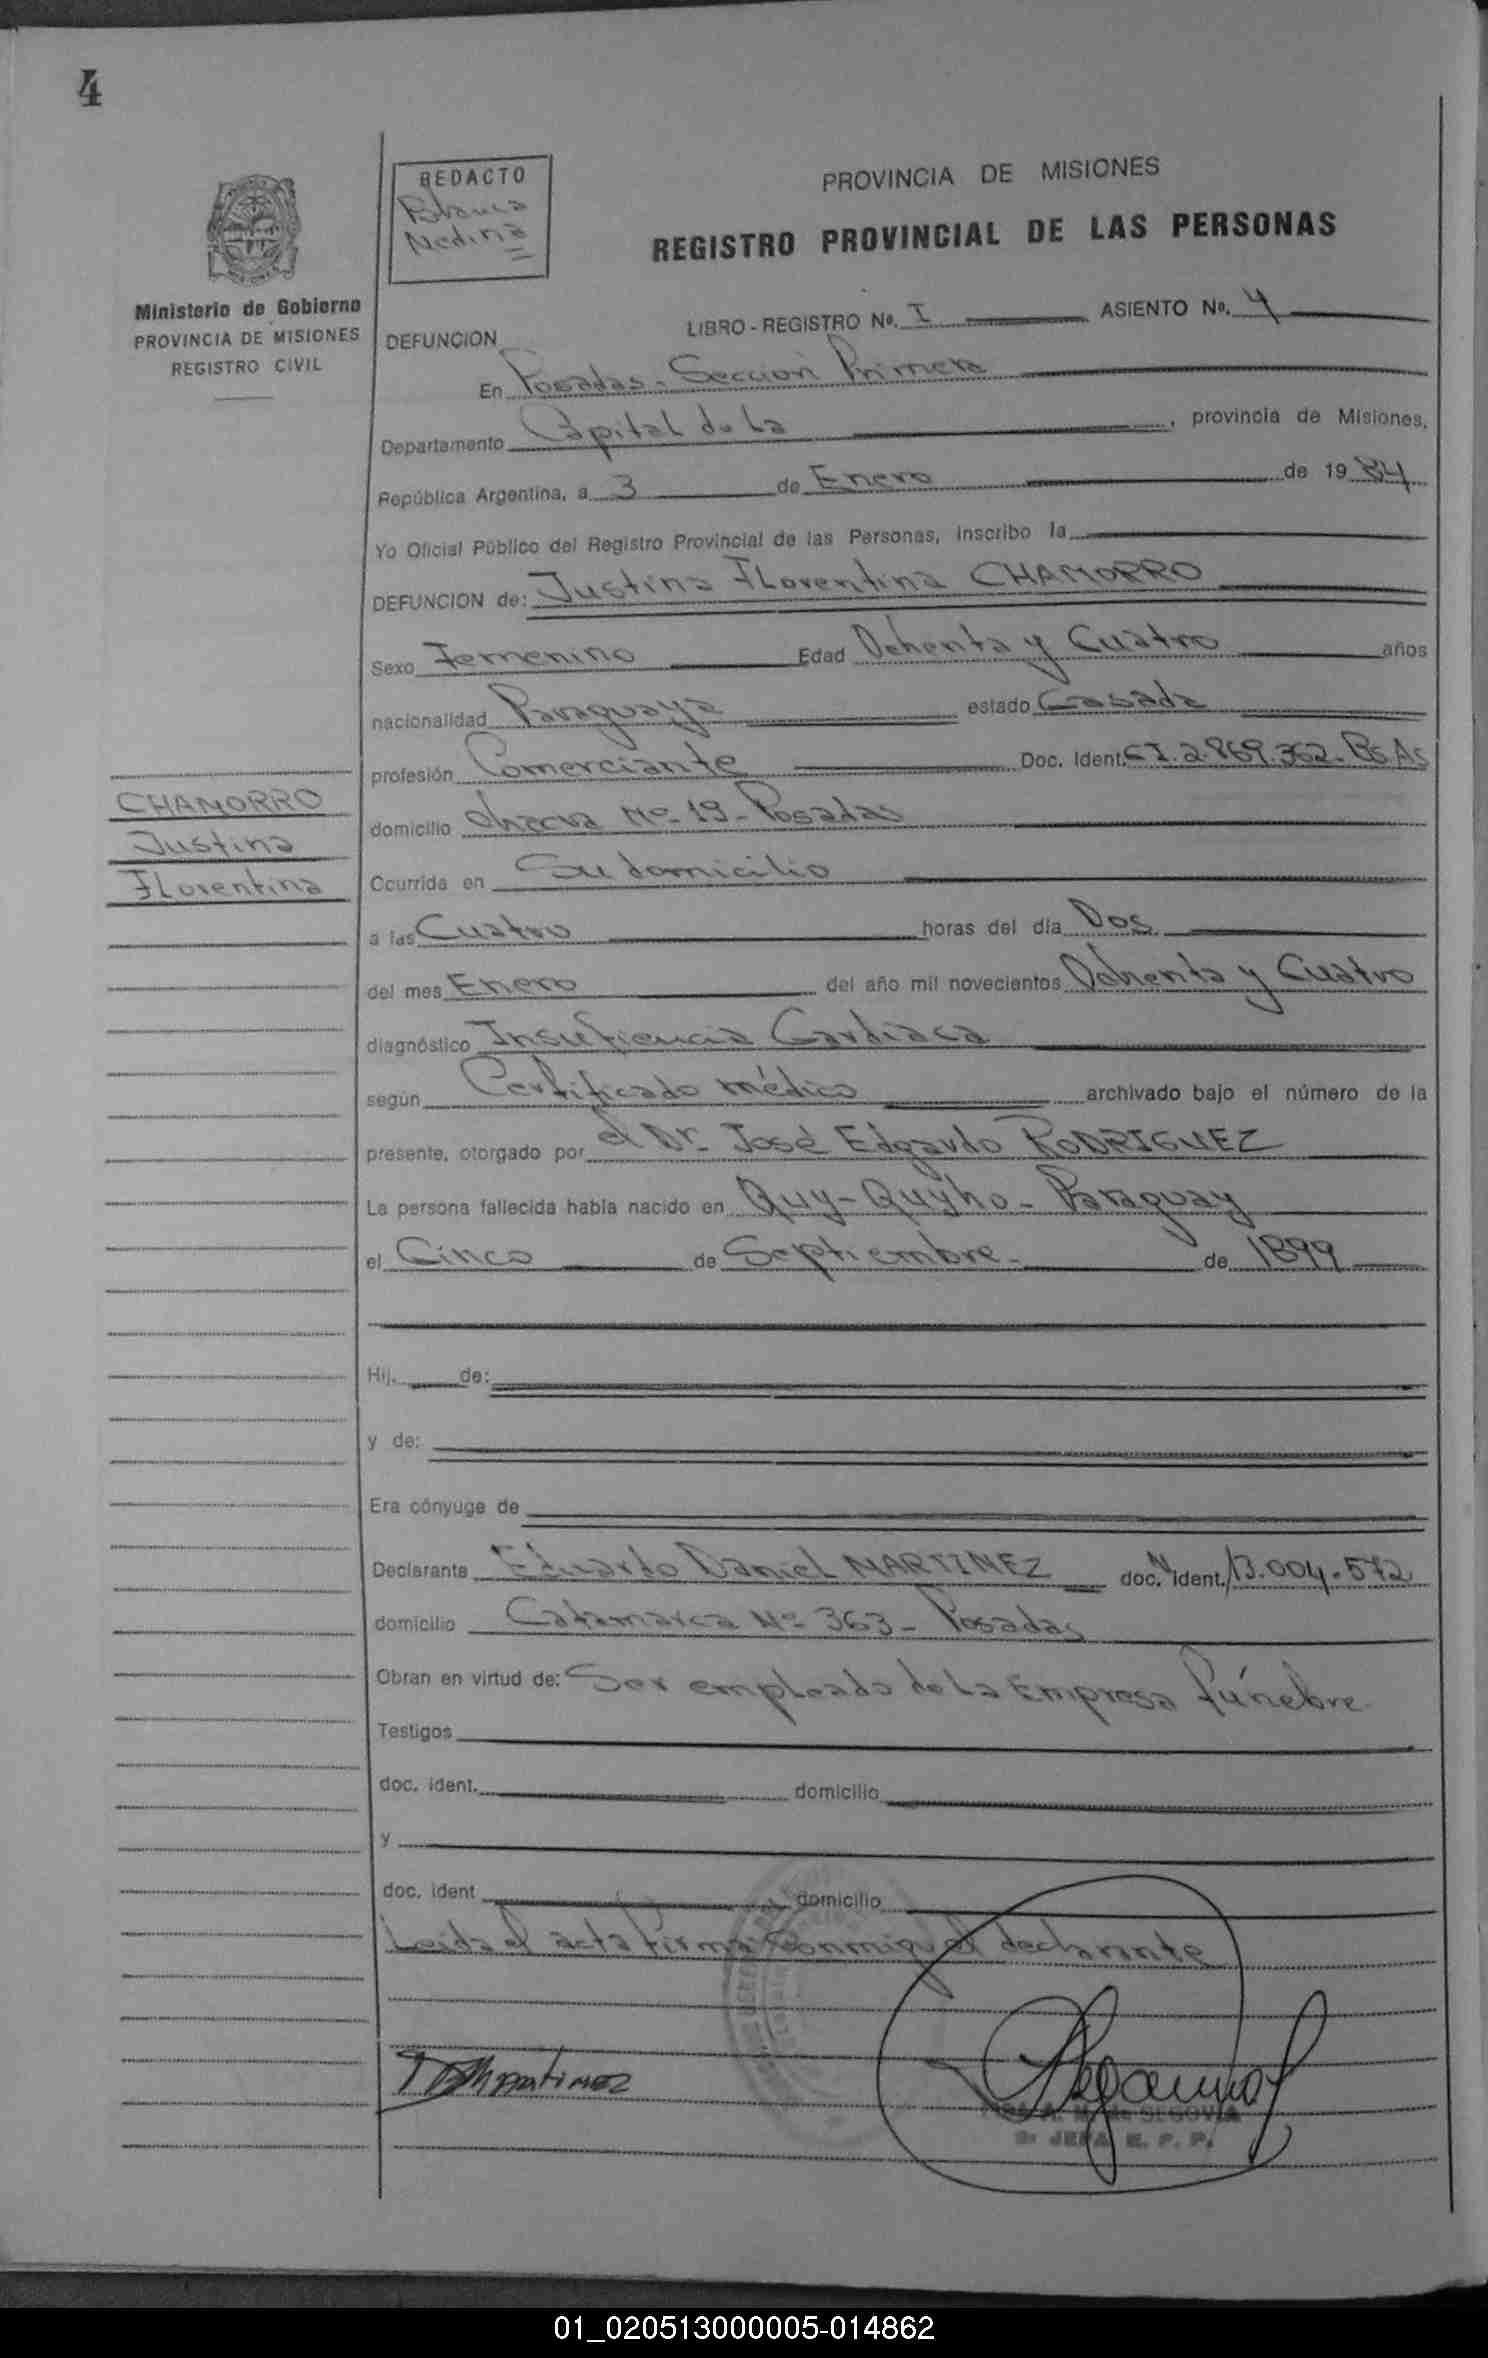 4
REDACTO
Blanca
Medina
PROVINCIA DE MISIONES
REGISTRO PROVINCIAL DE LAS PERSONAS
Ministerio de Gobierno
PROVINCIA DE MISIONES
REGISTRO CIVIL
LIBRO - REGISTRO Nº. I ASIENTO Nº. 4
DEFUNCION
En Posadas - Seccion Primera
Departamento Capital de La , provincia de Misiones,
República Argentina, a 3 de Enero de 1984
Yo Oficial Público del Registro Provincial de las Personas, inscribo la
DEFUNCION de: Justina FLorentina CHAMORRO
Sexo Femenino Edad Ochenta y Cuatro años
nacionalidad Paraguaya estado Casada
profesión Comerciante Doc. Ident. CI. 2.869.362- Bs As
CHAMORRO
Justina
FLorentina
domicilio Chacra Nº 19 - Posadas
Ocurrida en Su domicilio
a las Cuatro horas del día Dos
del mes Enero del año mil novecientos Ochenta y Cuatro
diagnóstico Insuficiencia Cardiaca
según Certificado médico archivado bajo el número de la
presente, otorgado por el Dr. José Edgardo RODRIGUEZ
La persona fallecida había nacido en Quy-Quyho - Paraguay
el Cinco de Septiembre - de 1899
Hij. de:
y de:
Era cónyuge de
Declarante Eduardo Daniel MARTINEZ doc. N ident. 13.004.572
domicilio Catamarca Nº 363 - Posadas
Obran en virtud de: Ser empleado de La Empresa fúnebre-
Testigos
doc. ident. domicilio
y
doc. ident domicilio
Leida el acta firma conmigo el declarante
SEGOVIA
JEFA R. P. P.
01_020513000005-014862